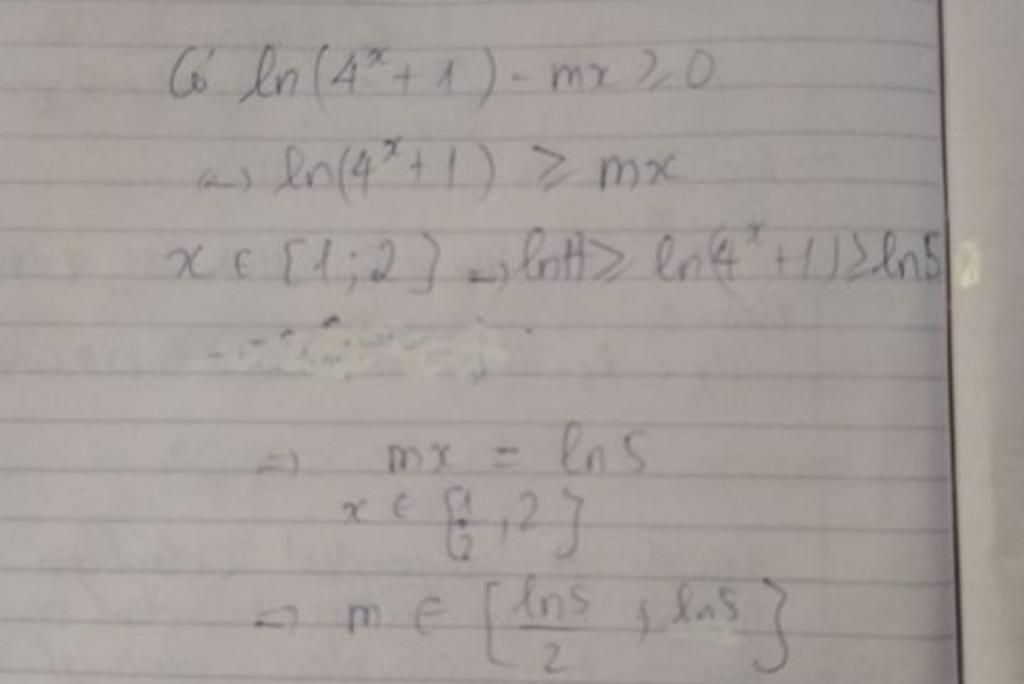 Có ln(4ˣ + 1) - mx ≥ 0
=> ln(4ˣ + 1) ≥ mx
x ∈ [1; 2] => ln17 ≥ ln(4ˣ + 1) ≥ ln5
=> mx = ln5
x ∈ [, 2]
=> m ∈ [ln5/2 ; ln5]